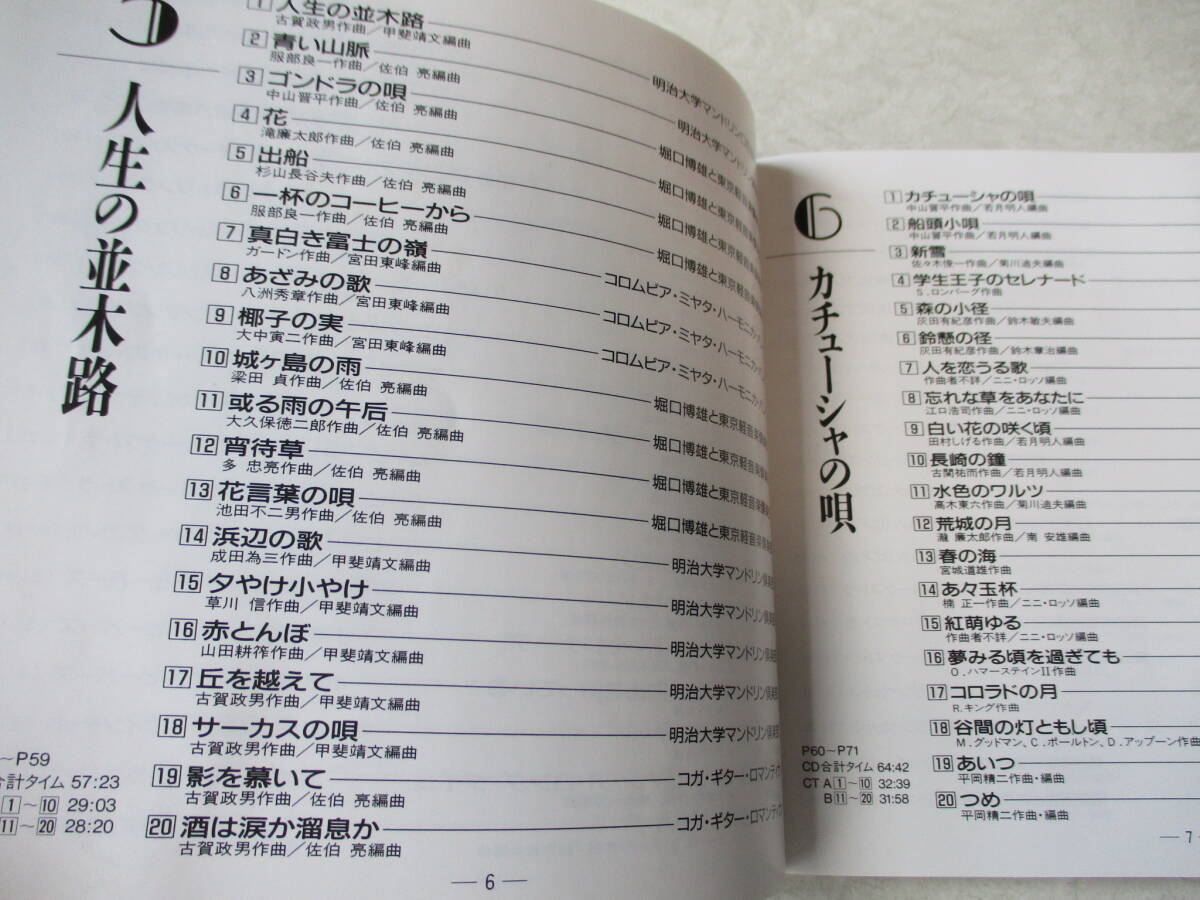 5
人生の並木路
1 人生の並木路
古賀政男作曲／甲斐靖文編曲
明治大学マンドリン
2 青い山脈
服部良一作曲／佐伯 亮編曲
明治大学マンドリン
3 ゴンドラの唄
中山晋平作曲／佐伯 亮編曲
堀口博雄と東京軽音楽
4 花
滝廉太郎作曲／佐伯 亮編曲
堀口博雄と東京軽音楽
5 出船
杉山長谷夫作曲／佐伯 亮編曲
堀口博雄と東京軽音楽
6 一杯のコーヒーから
服部良一作曲／佐伯 亮編曲
堀口博雄と東京軽音楽
7 真白き富士の嶺
ガードン作曲／宮田東峰編曲
コロムビア・ミヤタ・ハーモニカ
8 あざみの歌
八洲秀章作曲／宮田東峰編曲
コロムビア・ミヤタ・ハーモニカ
9 椰子の実
大中寅二作曲／宮田東峰編曲
コロムビア・ミヤタ・ハーモニカ
10 城ヶ島の雨
梁田 貞作曲／佐伯 亮編曲
堀口博雄と東京軽音楽
11 或る雨の午后
大久保徳二郎作曲／佐伯 亮編曲
堀口博雄と東京軽音楽
12 宵待草
多 忠亮作曲／佐伯 亮編曲
堀口博雄と東京軽音楽
13 花言葉の唄
池田不二男作曲／佐伯 亮編曲
堀口博雄と東京軽音楽
14 浜辺の歌
成田為三作曲／甲斐靖文編曲
明治大学マンドリン倶楽部
15 夕やけ小やけ
草川 信作曲／甲斐靖文編曲
明治大学マンドリン倶楽部
16 赤とんぼ
山田耕筰作曲／甲斐靖文編曲
明治大学マンドリン倶楽部
17 丘を越えて
古賀政男作曲／甲斐靖文編曲
明治大学マンドリン倶楽部
18 サーカスの唄
古賀政男作曲／甲斐靖文編曲
明治大学マンドリン倶楽部
19 影を慕いて
古賀政男作曲／佐伯 亮編曲
コガ・ギター・ロマンティカ
20 酒は涙か溜息か
古賀政男作曲／佐伯 亮編曲
コガ・ギター・ロマンティカ
〜P59
合計タイム 57:23
1〜10 29:03
11〜20 28:20
— 6 —
6
カチューシャの唄
1 カチューシャの唄
中山晋平作曲／若月明人編曲
2 船頭小唄
中山晋平作曲／若月明人編曲
3 新雪
佐々木俊一作曲／菊川迪夫編曲
4 学生王子のセレナード
S.ロンバーグ作曲
5 森の小径
灰田有紀彦作曲／鈴木敏夫編曲
6 鈴懸の径
灰田有紀彦作曲／鈴木章治編曲
7 人を恋うる歌
作曲者不詳／ニニ・ロッソ編曲
8 忘れな草をあなたに
江口浩司作曲／ニニ・ロッソ編曲
9 白い花の咲く頃
田村しげる作曲／若月明人編曲
10 長崎の鐘
古関祐而作曲／若月明人編曲
11 水色のワルツ
高木東六作曲／菊川迪夫編曲
12 荒城の月
瀧 廉太郎作曲／南 安雄編曲
13 春の海
宮城道雄作曲
14 あ々玉杯
楠 正一作曲／ニニ・ロッソ編曲
15 紅萌ゆる
作曲者不詳／ニニ・ロッソ編曲
16 夢みる頃を過ぎても
O.ハマースタインII作曲
17 コロラドの月
R.キング作曲
18 谷間の灯ともし頃
M.グッドマン、C.ポールトン、D.アップーン作曲
19 あいつ
平岡精二作曲・編曲
20 つめ
平岡精二作曲・編曲
P60〜P71
CD合計タイム 64:42
CT A 1〜10 32:39
B 11〜20 31:58
— 7